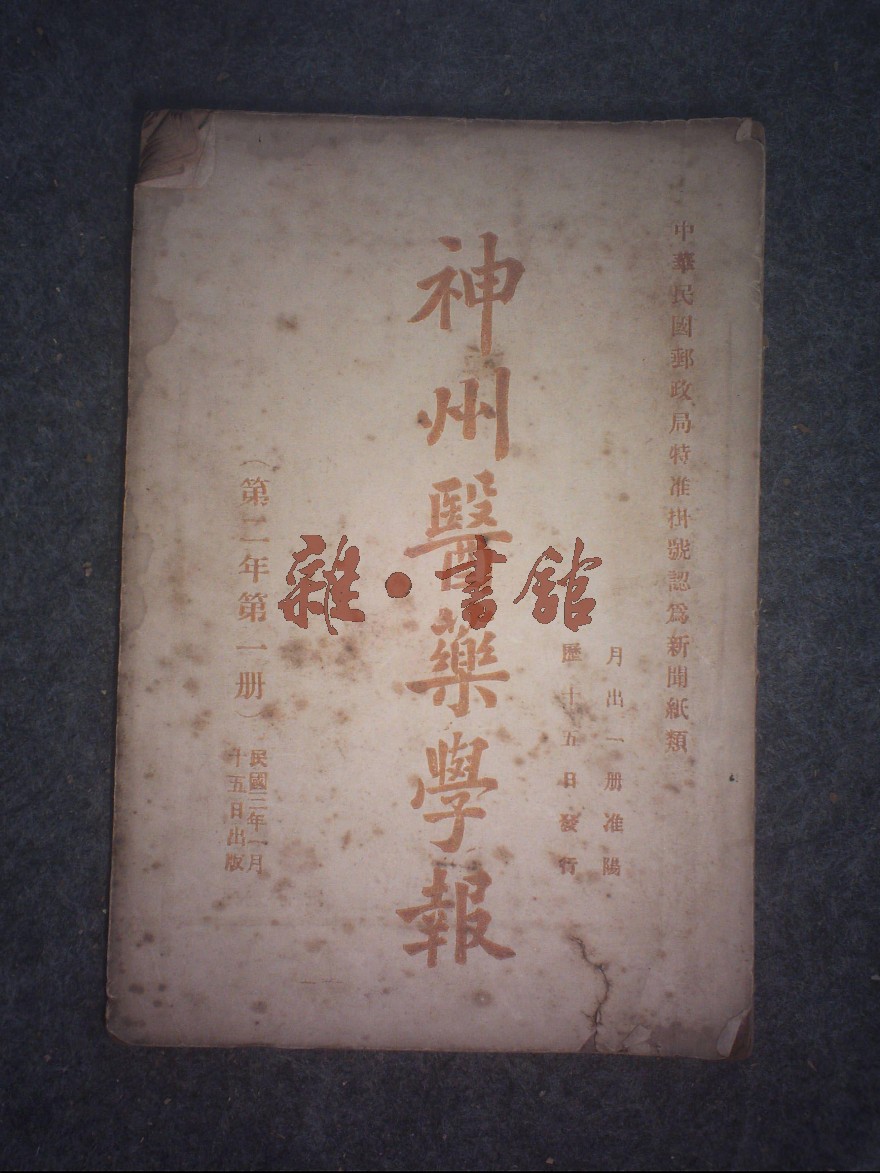 中華民國郵政局特准掛號認爲新聞紙類
月出一册准陽
歷十五日發行
神州醫藥學報
（第二年第一册）
民國三年一月
十五日出版
雜·書館